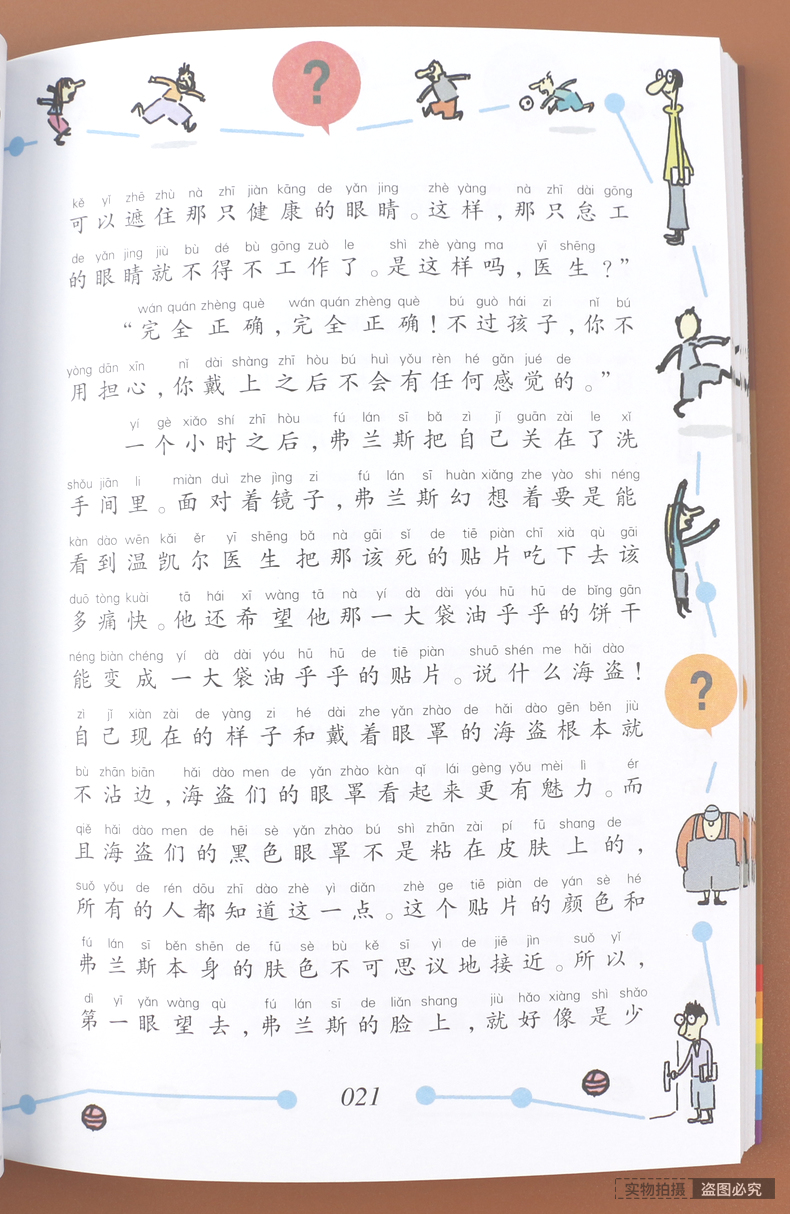 ?
kě yǐ zhē zhù nà zhī jiàn kāng de yǎn jing zhè yàng nà zhī dài gōng
可以遮住那只健康的眼睛。这样,那只怠工
de yǎn jing jiù bù dé bù gōng zuò le shì zhè yàng ma yī shēng
的眼睛就不得不工作了。是这样吗,医生?”
wán quán zhèng què wán quán zhèng què bú guò hái zi nǐ bú
“完全正确,完全正确!不过孩子,你不
yòng dān xīn nǐ dài shàng zhī hòu bú huì yǒu rèn hé gǎn jué de
用担心,你戴上之后不会有任何感觉的。”
yí gè xiǎo shí zhī hòu fú lán sī bǎ zì jǐ guān zài le xǐ
一个小时之后,弗兰斯把自己关在了洗
shǒu jiān li miàn duì zhe jìng zi fú lán sī huàn xiǎng zhe yào shi néng
手间里。面对着镜子,弗兰斯幻想着要是能
kàn dào wēn kǎi ěr yī shēng bǎ nà gāi sǐ de tiē piàn chī xià qù gāi
看到温凯尔医生把那该死的贴片吃下去该
duō tòng kuài tā hái xī wàng tā nà yí dà dài yóu hū hū de bǐng gān
多痛快。他还希望他那一大袋油乎乎的饼干
néng biàn chéng yí dà dài yóu hū hū de tiē piàn shuō shén me hǎi dào
能变成一大袋油乎乎的贴片。说什么海盗!
zì jǐ xiàn zài de yàng zi hé dài zhe yǎn zhào de hǎi dào gēn běn jiù
自己现在的样子和戴着眼罩的海盗根本就
bù zhān biān hǎi dào men de yǎn zhào kàn qǐ lái gèng yǒu mèi lì ér
不沾边,海盗们的眼罩看起来更有魅力。而
qiě hǎi dào men de hēi sè yǎn zhào bú shì zhān zài pí fū shang de
且海盗们的黑色眼罩不是粘在皮肤上的,
suǒ yǒu de rén dōu zhī dào zhè yì diǎn zhè ge tiē piàn de yán sè hé
所有的人都知道这一点。这个贴片的颜色和
fú lán sī běn shēn de fū sè bù kě sī yì de jiē jìn suǒ yǐ
弗兰斯本身的肤色不可思议地接近。所以,
dì yī yǎn wàng qù fú lán sī de liǎn shang jiù hǎo xiàng shì shǎo
第一眼望去,弗兰斯的脸上,就好像是少
?
021
实物拍摄 盗图必究